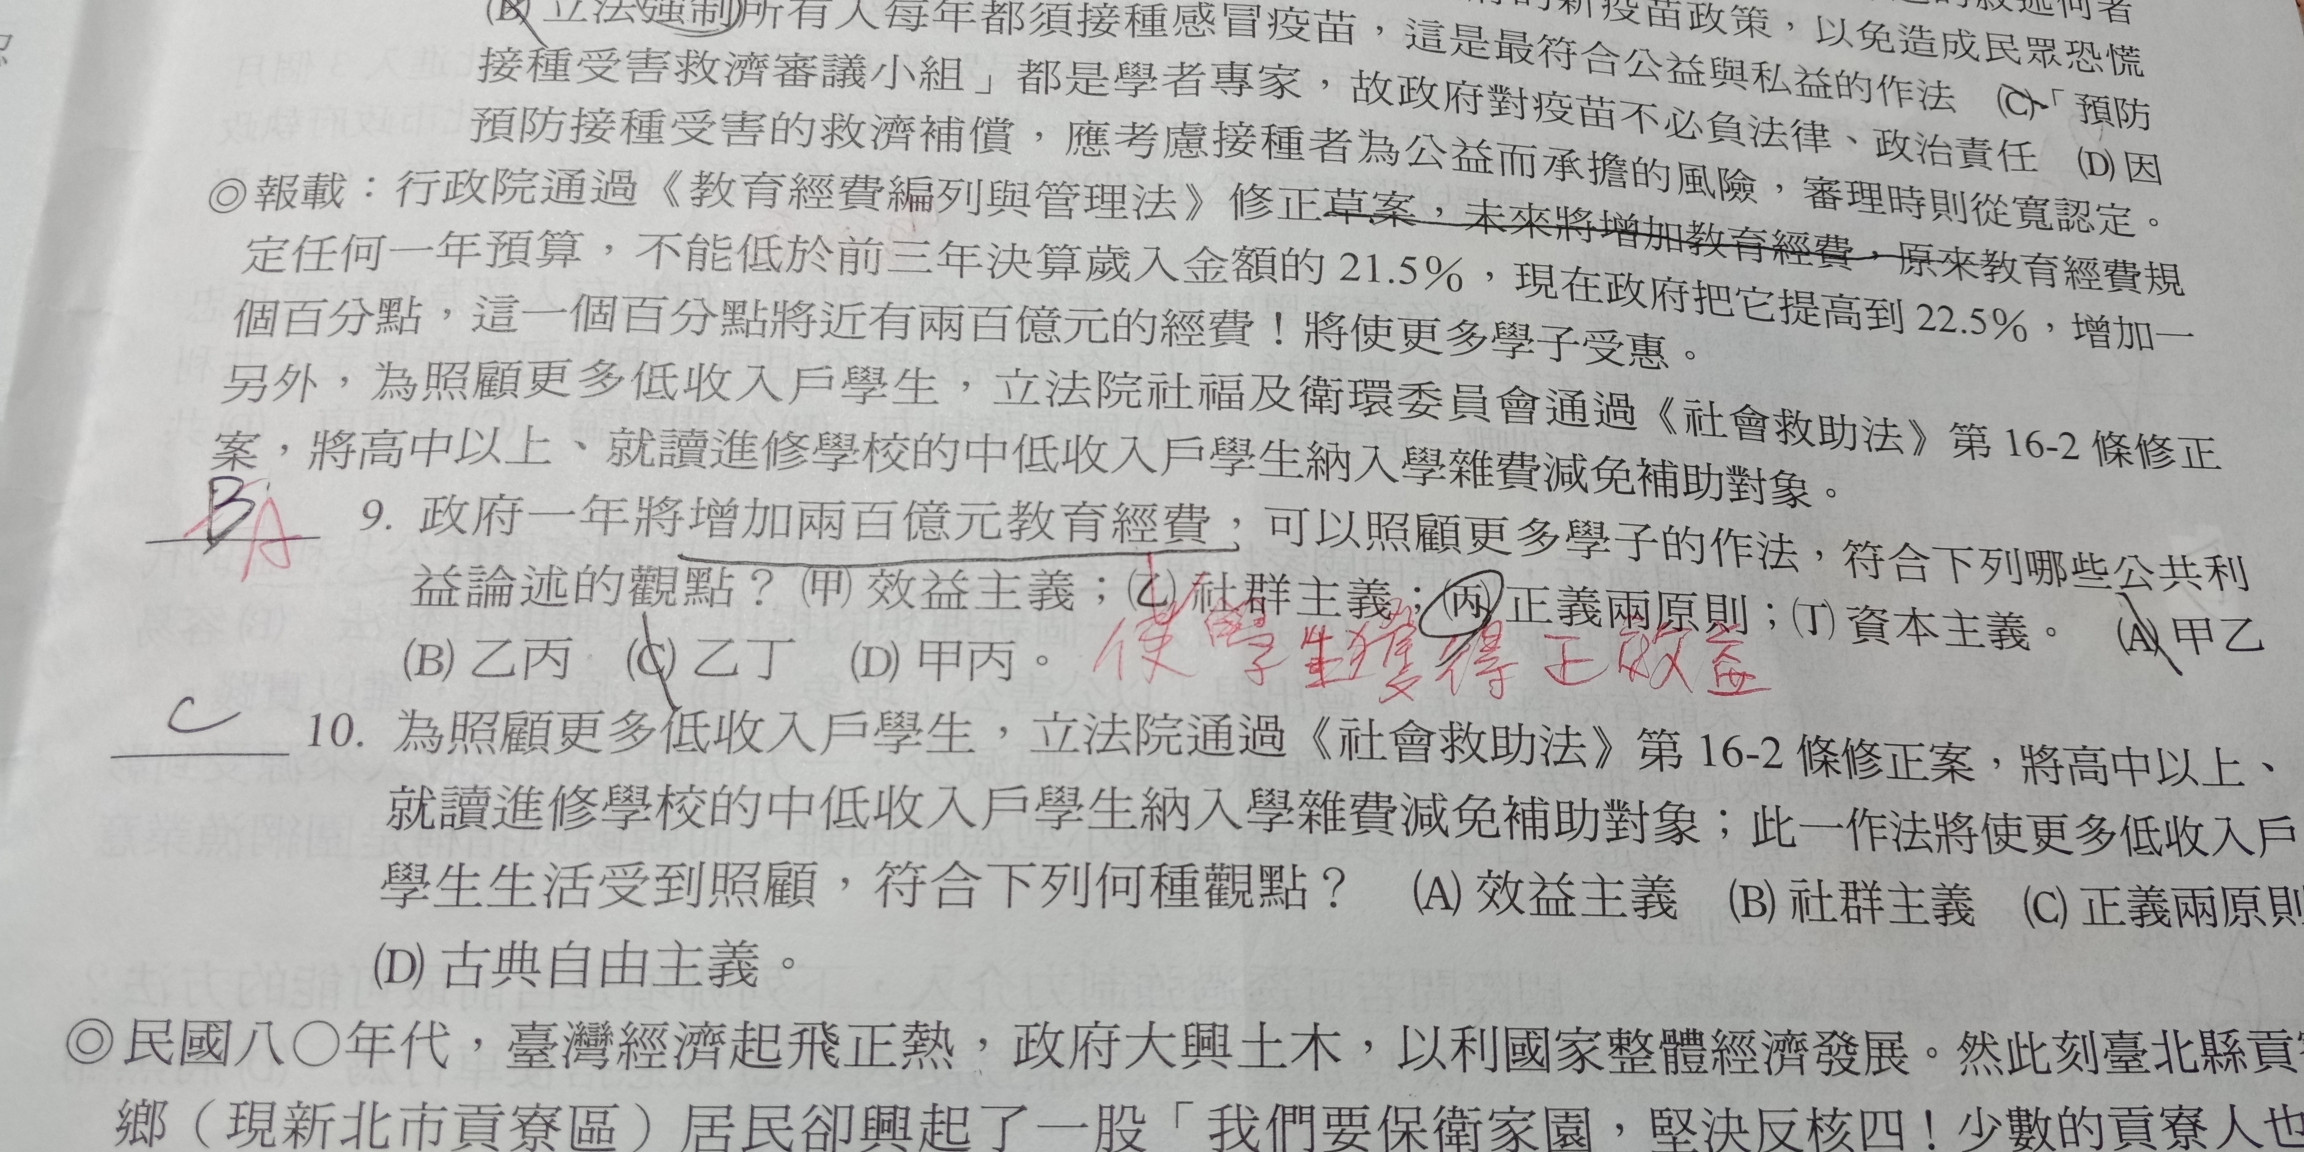 的新疫苗政策，以免造成民眾恐慌
(B) 立法強制所有人每年都須接種感冒疫苗，這是最符合公益與私益的作法　(C)「預防
接種受害救濟審議小組」都是學者專家，故政府對疫苗不必負法律、政治責任　(D) 因
預防接種受害的救濟補償，應考慮接種者為公益而承擔的風險，審理時則從寬認定。
◎報載：行政院通過《教育經費編列與管理法》修正草案，未來將增加教育經費，原來教育經費規
定任何一年預算，不能低於前三年決算歲入金額的 21.5%，現在政府把它提高到 22.5%，增加一
個百分點，這一個百分點將近有兩百億元的經費！將使更多學子受惠。
另外，為照顧更多低收入戶學生，立法院社福及衛環委員會通過《社會救助法》第 16-2 條修正
案，將高中以上、就讀進修學校的中低收入戶學生納入學雜費減免補助對象。
B A 9. 政府一年將增加兩百億元教育經費，可以照顧更多學子的作法，符合下列哪些公共利
益論述的觀點？(甲) 效益主義；(乙) 社群主義；(丙) 正義兩原則；(丁) 資本主義。　(A) 甲乙
(B) 乙丙　(C) 乙丁　(D) 甲丙。
使學生獲得正效益
C 10. 為照顧更多低收入戶學生，立法院通過《社會救助法》第 16-2 條修正案，將高中以上、
就讀進修學校的中低收入戶學生納入學雜費減免補助對象；此一作法將使更多低收入戶
學生生活受到照顧，符合下列何種觀點？　(A) 效益主義　(B) 社群主義　(C) 正義兩原則
(D) 古典自由主義。
◎民國八〇年代，臺灣經濟起飛正熱，政府大興土木，以利國家整體經濟發展。然此刻臺北縣貢
鄉（現新北市貢寮區）居民卻興起了一股「我們要保衛家園，堅決反核四！少數的貢寮人也